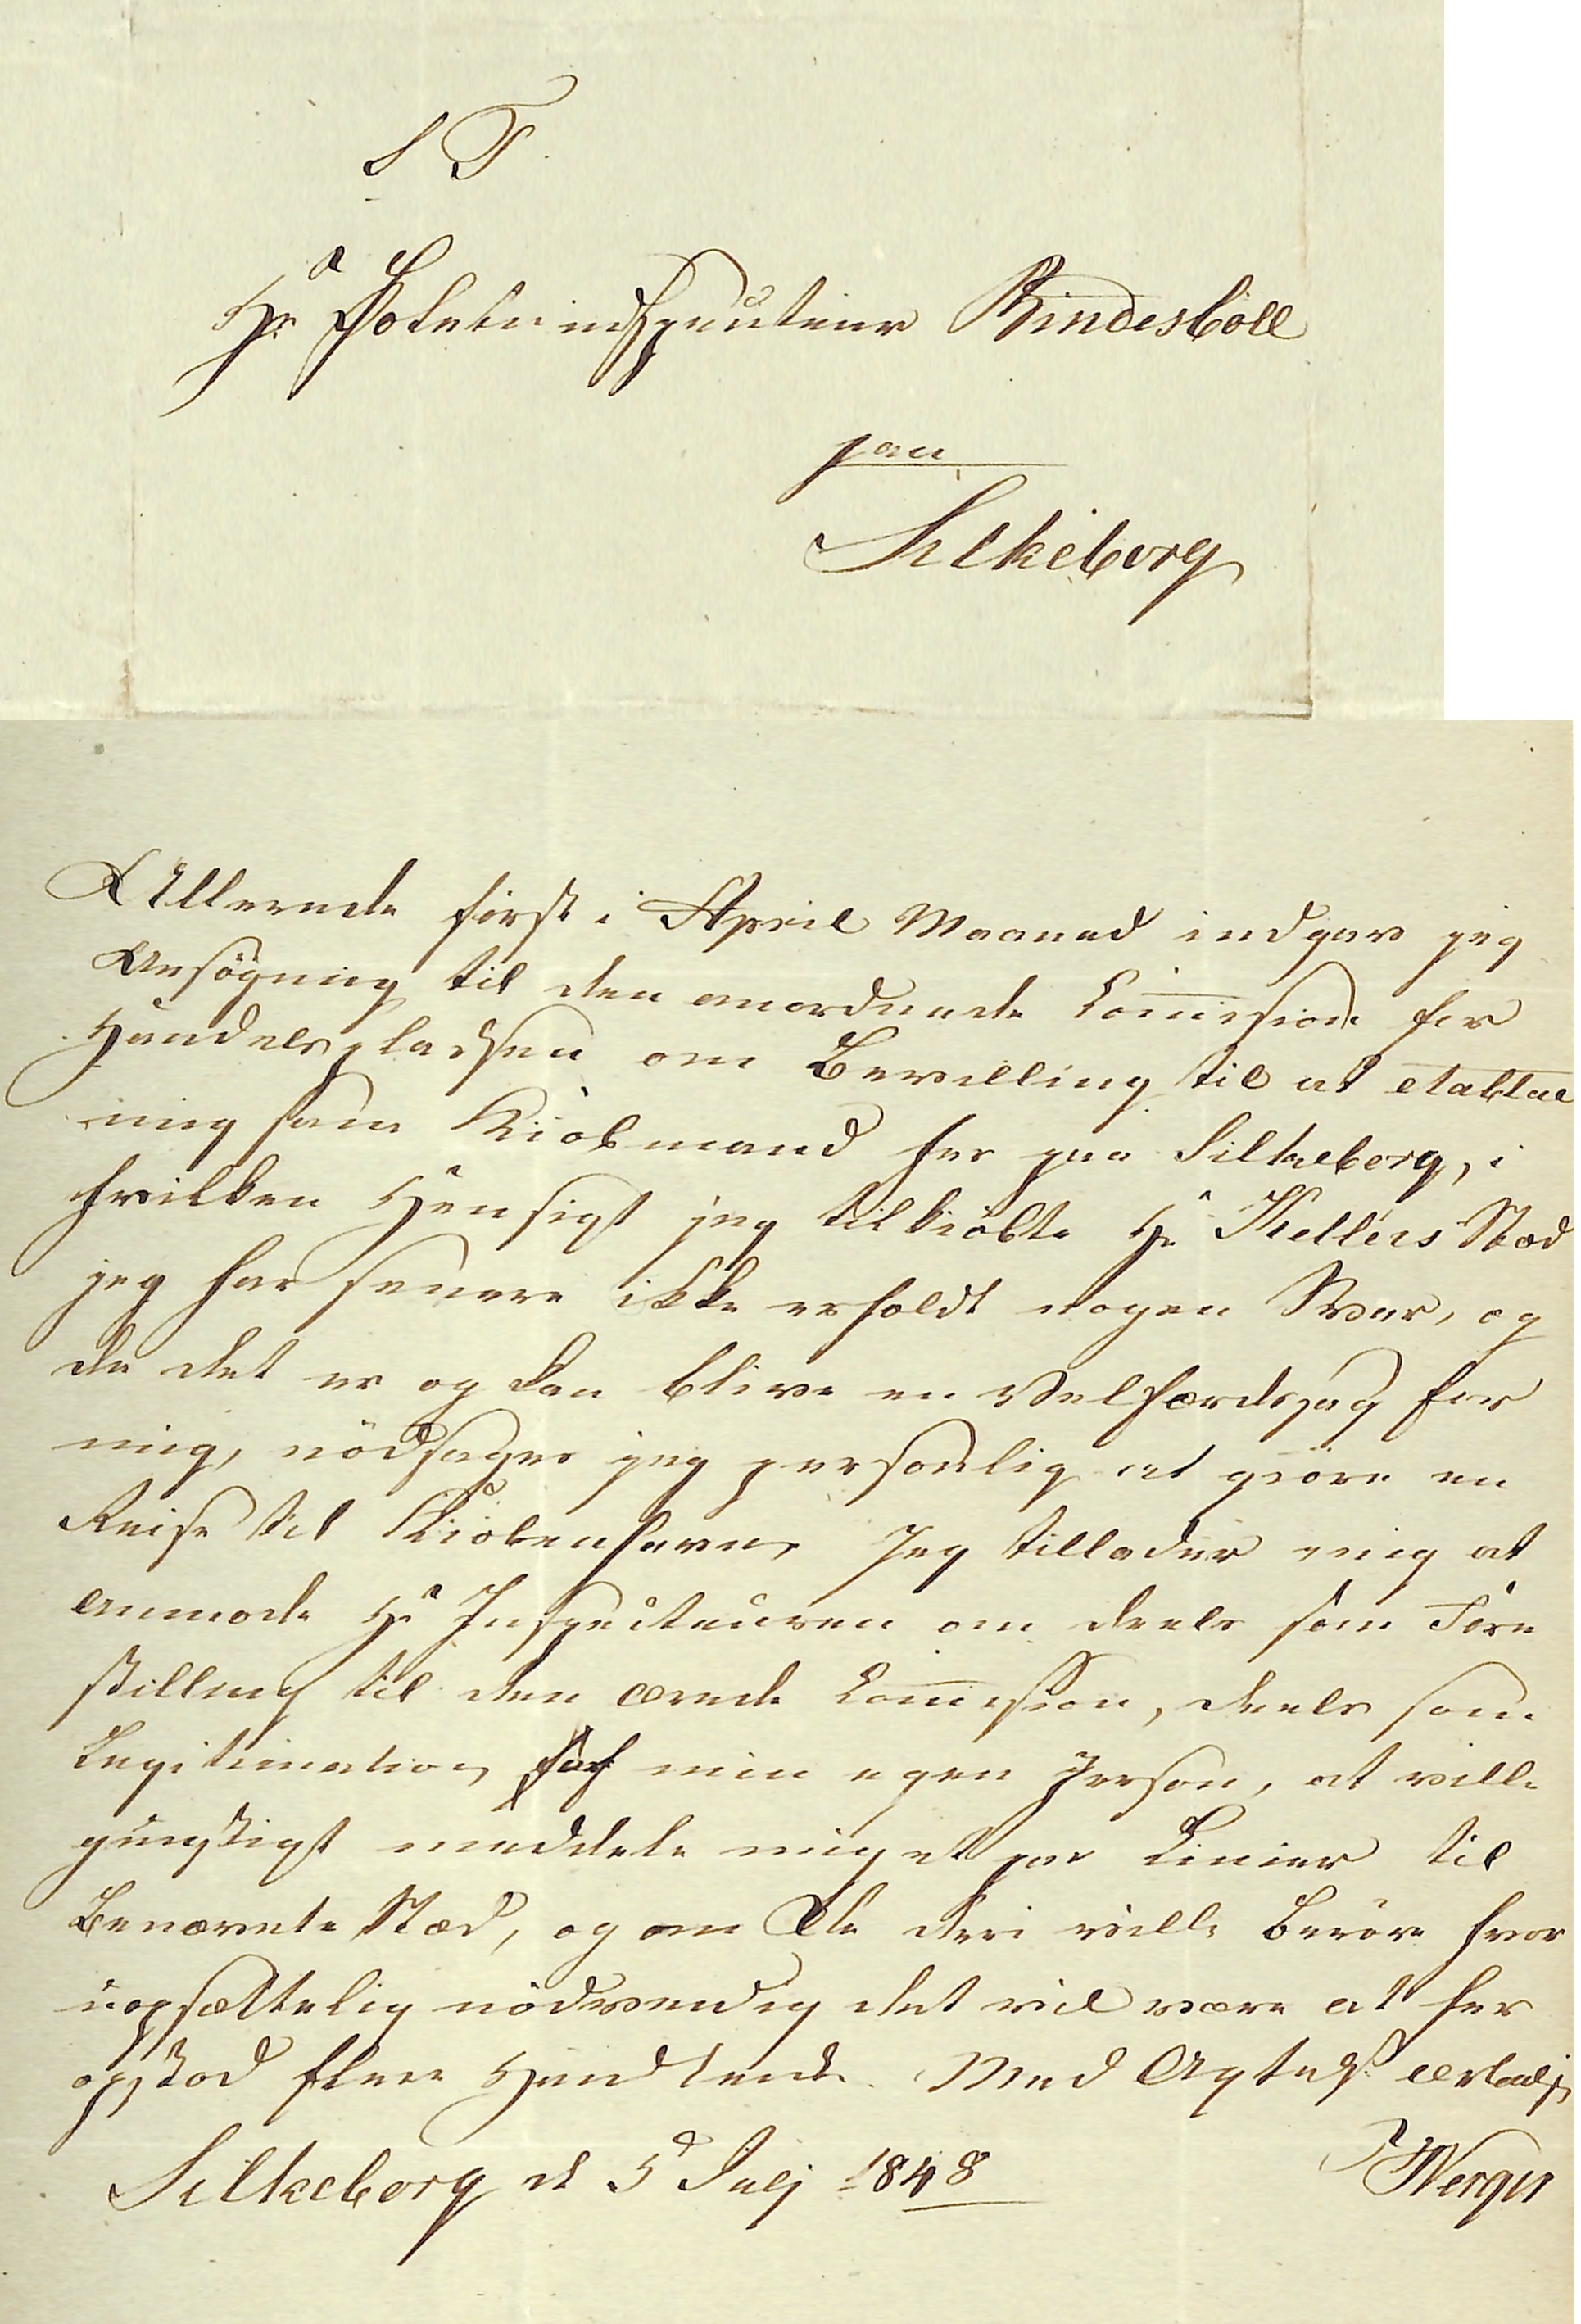 S T
Hr Toldinspecteur Bindesböll
paa
Silkeborg
Allerede först i April Maaned indgav jeg
Ansögning til den anordnede Commission for
Handelspladsen om Bevilling til at etablae
mig som Kiöbmand her paa Silkeborg, i
hvilken Hensigt jeg tilkiöbte Hr Kellers Stæd
jeg har senere ikke erholdt nogen Svar, og
da det er og kan blive en Velfærdssag for
mig, nödsages jeg personlig at giöre en
Reise til Kiöbenhavn, Jeg tillader mig at
anmode Hr Inspecteuren om deels som Fore
stilling til den ærede Commission, deels som
Legitimation for min egen Person, at ville
gunstigst meddele mig et par Linier til
Benævnte Stæd, og om De deri ville beröre hvor
uopsættelig nödvendig det vil være at her
opstod flere Handlende. Med Agtelse ærbødigst
Silkeborg d 5 Julj 1848
Werger